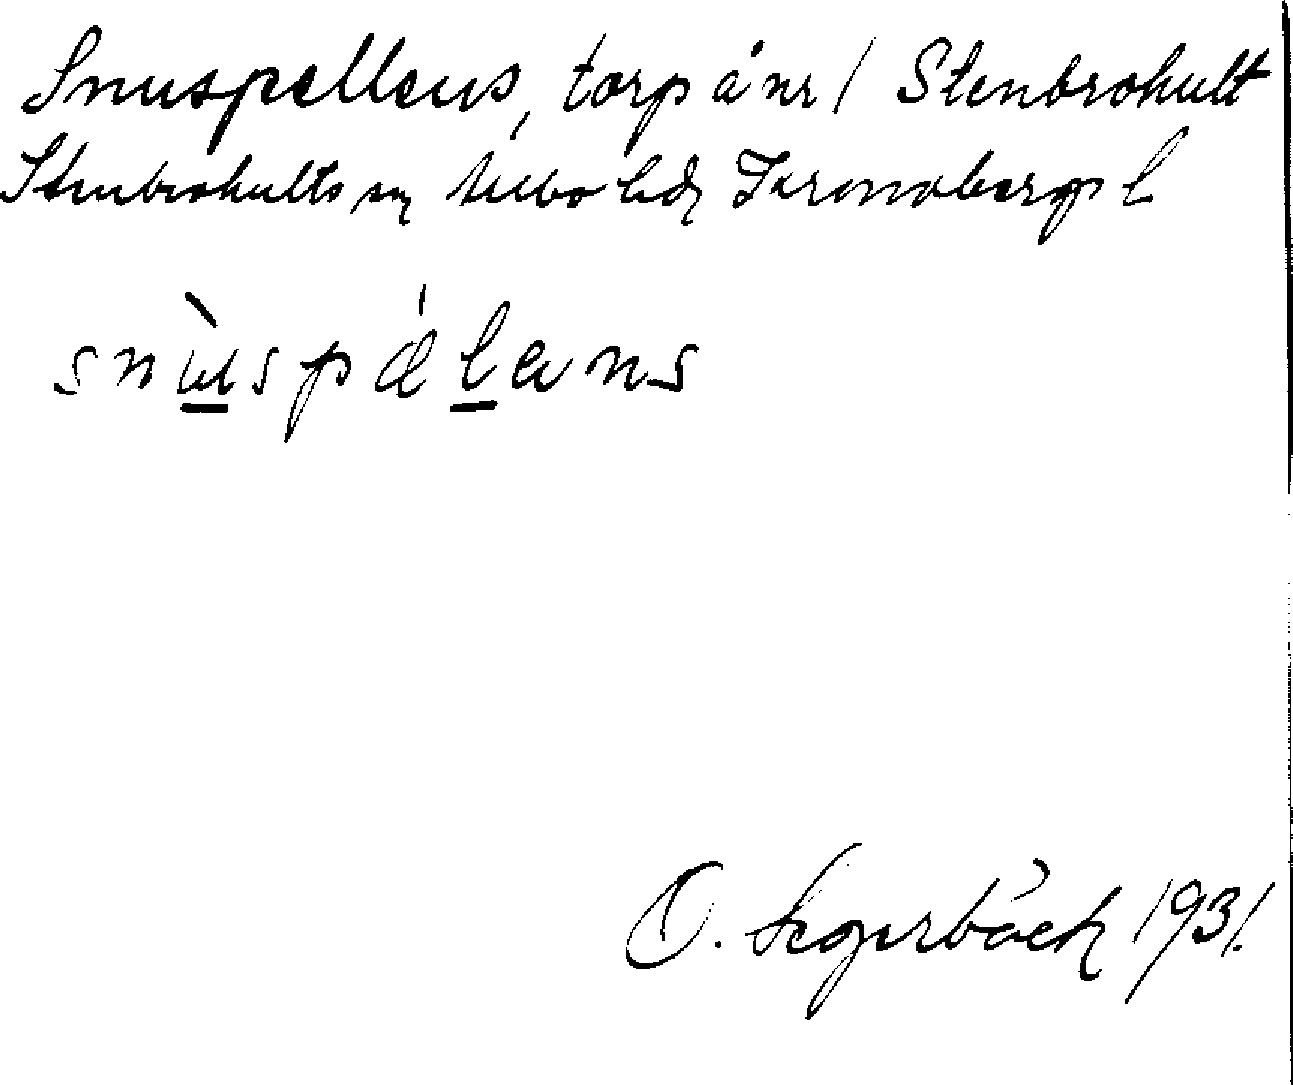 Snuspellens, torp å nr 1 Stenbrohult
Stenbrohults sn Allbo hd Kronobergs l
snùspǽlans
O. Segerbäck 1931.